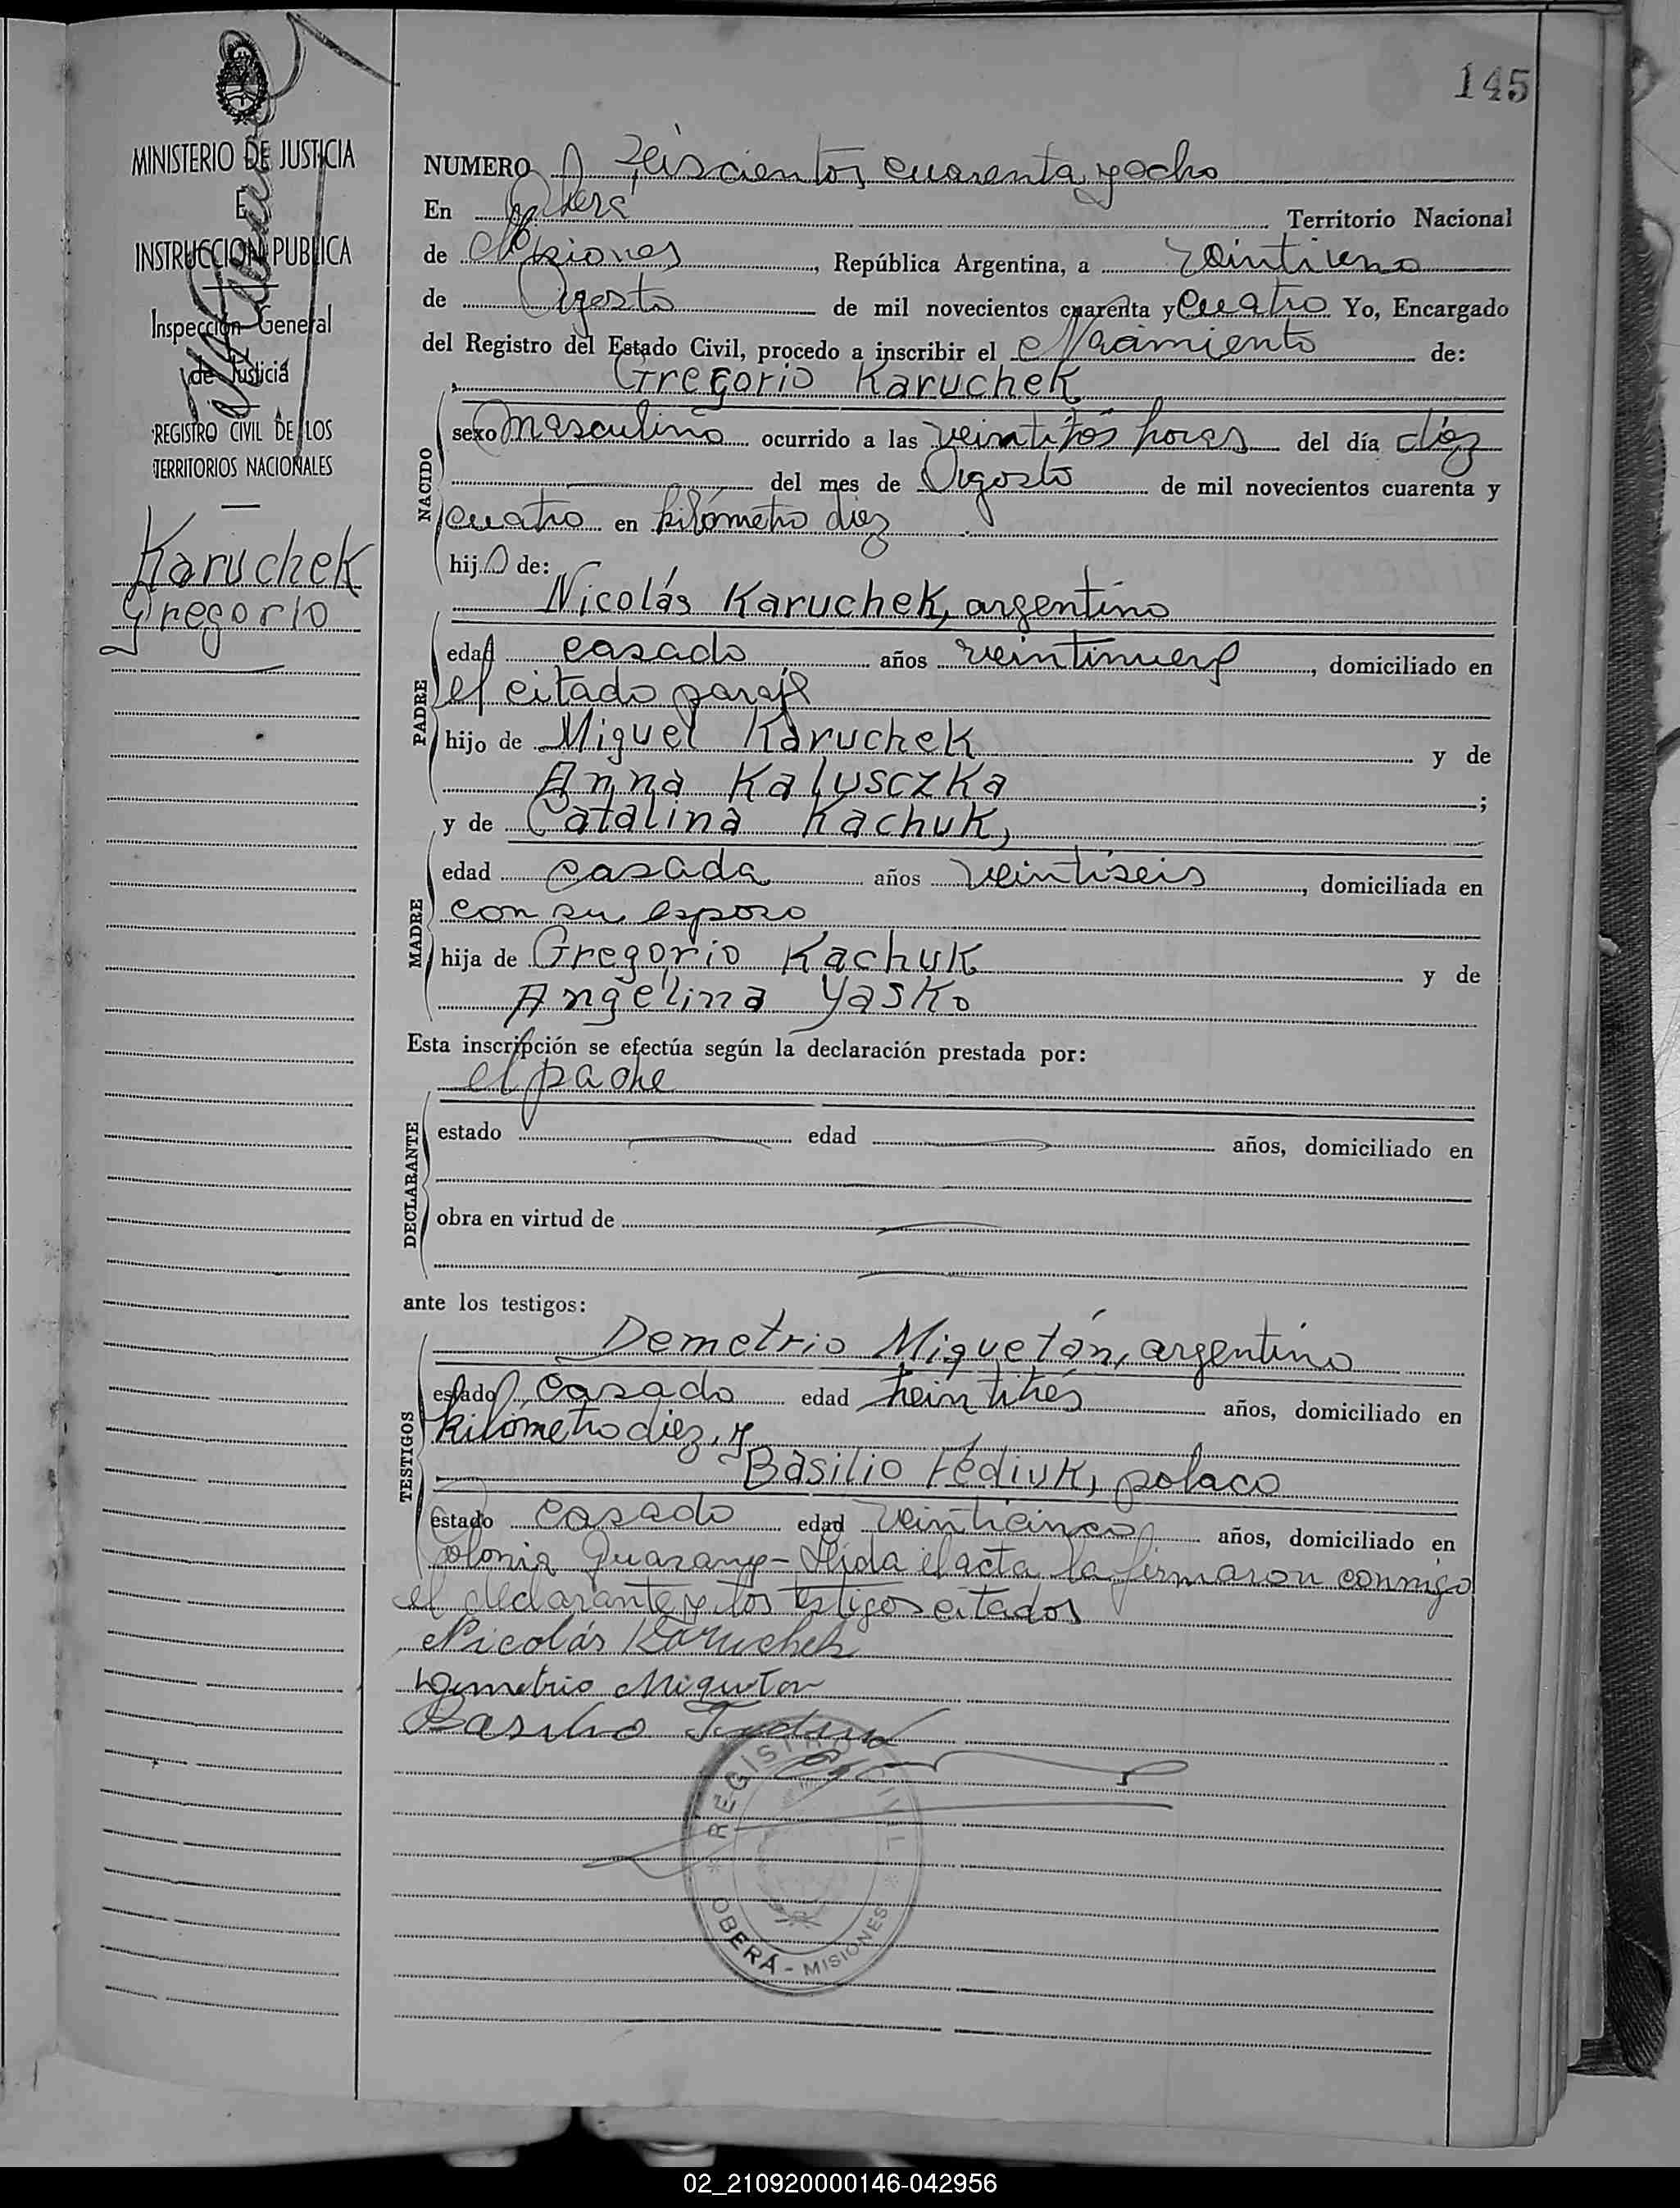 145
MINISTERIO DE JUSTICIA
E
INSTRUCCION PUBLICA
Inspección General
de Justicia
REGISTRO CIVIL DE LOS
TERRITORIOS NACIONALES
Karuchek
Gregorio
NUMERO Seiscientos cuarenta y ocho
En Oberá Territorio Nacional
de Misiones, República Argentina, a veintiuno
de Agosto de mil novecientos cuarenta y cuatro Yo, Encargado
del Registro del Estado Civil, procedo a inscribir el Nacimiento de:
Gregorio Karuchek
NACIDO
sexo masculino ocurrido a las veintidós horas del día diez
del mes de Agosto de mil novecientos cuarenta y
cuatro en kilómetro diez
hijo de:
Nicolás Karuchek, argentino
PADRE
edad casado años veintinueve, domiciliado en
el citado paraje
hijo de Miguel Karuchek y de
Anna Kalusczka;
y de Catalina Kachuk,
MADRE
edad casada años veintiseis, domiciliada en
con su esposo
hija de Gregorio Kachuk y de
Angelina Yasko
Esta inscripción se efectúa según la declaración prestada por:
el padre
DECLARANTE
estado edad años, domiciliado en
obra en virtud de
ante los testigos:
Demetrio Miquetán, argentino
TESTIGOS
estado casado edad treintitrés años, domiciliado en
kilómetro diez, y
Basilio Fediuk, polaco
estado casado edad veinticinco años, domiciliado en
Colonia Guarany - Leida el acta la firmaron conmigo
el declarante y los testigos citados
Nicolás Karuchek
Demetrio Miquton
Basilio
REGISTRO CIVIL
OBERÁ - MISIONES
02_210920000146-042956